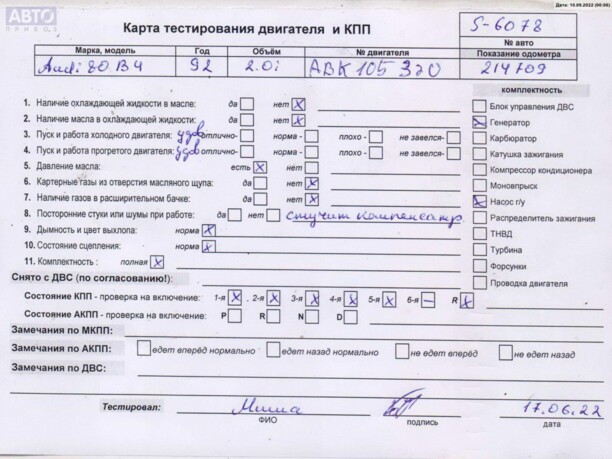 АВТО
ПРИВОЗ
Дата: 10.09.2022 (00:06)
Карта тестирования двигателя и КПП
S-6078
№ авто
Марка, модель Год Объём № двигателя Показание одометра
Audi 80 B4 92 2.0i ABK 105 320 214709
комплектность
1. Наличие охлаждающей жидкости в масле: да нет x
Блок управления ДВС
2. Наличие масла в охлаждающей жидкости: да нет x
Генератор
3. Пуск и работа холодного двигателя: удов отлично- норма - плохо - не завелся-
Карбюратор
4. Пуск и работа прогретого двигателя: удов отлично- норма - плохо - не завелся-
Катушка зажигания
5. Давление масла: есть x нет
Компрессор кондиционера
6. Картерные газы из отверстия масляного щупа: да нет x
Моновпрыск
7. Наличие газов в расширительном бачке: да нет x
Насос г/у
8. Посторонние стуки или шумы при работе: да нет стучит компенсатр
Распределитель зажигания
9. Дымность и цвет выхлопа: норма x
ТНВД
10. Состояние сцепления: норма x
Турбина
11. Комплектность : полная x
Форсунки
Снято с ДВС (по согласованию!):
Проводка двигателя
Состояние КПП - проверка на включение: 1-я x . 2-я x 3-я x 4-я x 5-я x 6-я – R x
Состояние АКПП - проверка на включение: P R N D
Замечания по МКПП:
Замечания по АКПП: едет вперёд нормально едет назад нормально не едет вперёд не едет назад
Замечания по ДВС:
Тестировал: Миша 17.06.22
ФИО подпись дата